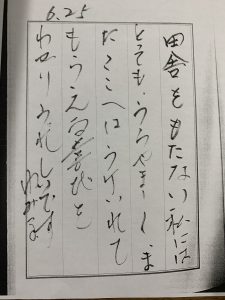 6.25
田舎をもたない私には
とても、うらやましく、ま
たここへはうけいれて
もらえる喜びを
わかりうれしいです